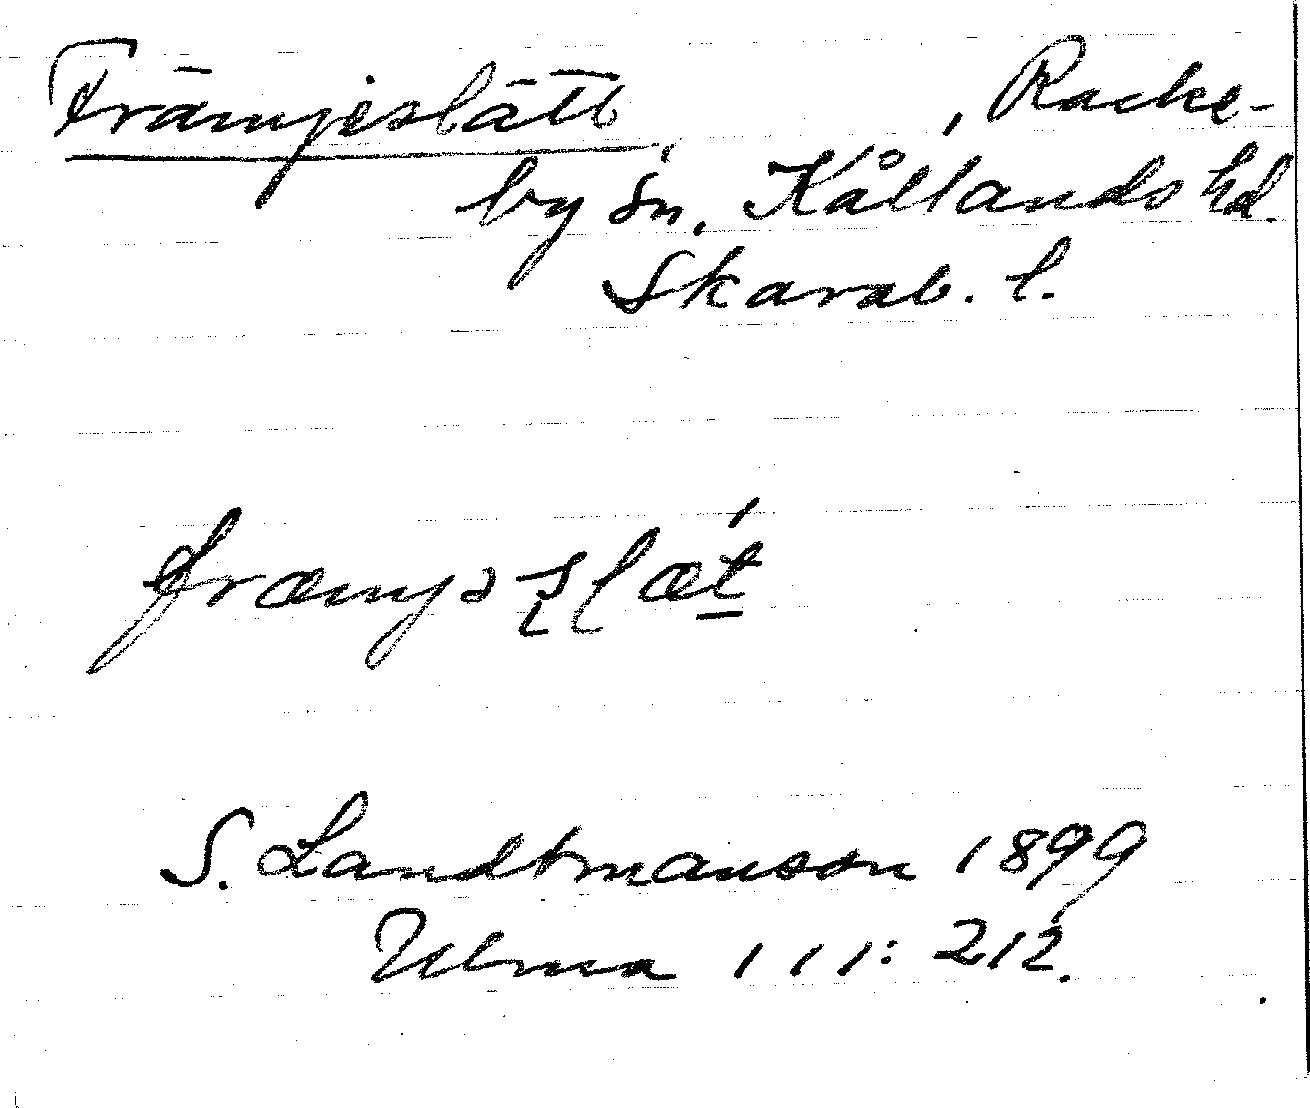 Främjeslätt, Racke-
by sn, Kållands hd.
Skarab. l.
fræmjəslæt́
S. Landtmanson 1899
Ulma 111: 212.